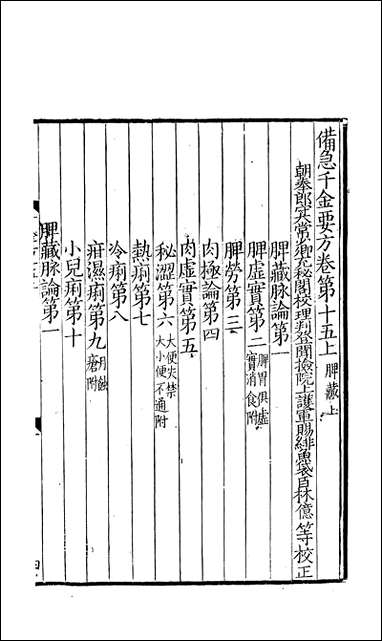 備急千金要方卷第十五上 脾藏上
朝奉郎守太常少卿充秘閣校理判登聞檢院上護軍賜緋魚袋臣林億等校正
脾藏脉論第一
脾虛實第二 脾胃俱虛實消食附
脾勞第三
肉極論第四
肉虛實第五
秘澀第六 大便失禁大小便不通附
熱痢第七
冷痢第八
疳濕痢第九 月蝕瘡附
小兒痢第十
脾藏脉論第一